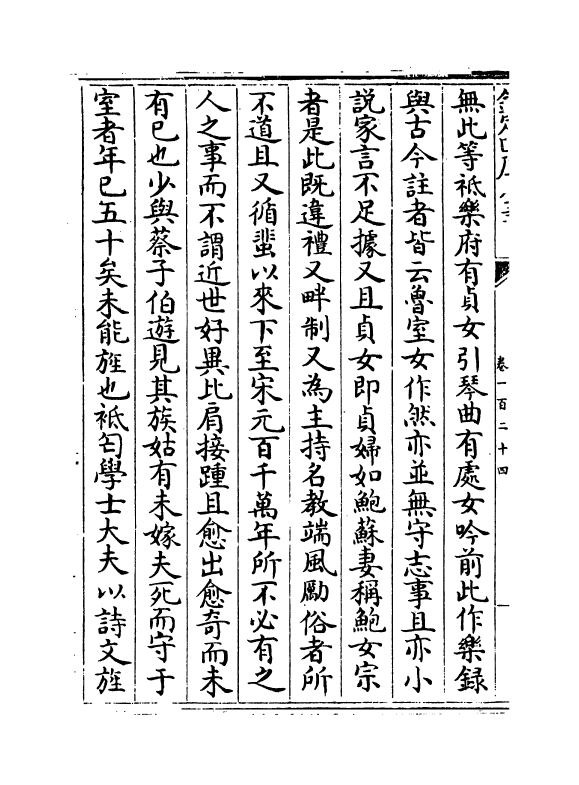 欽定四庫全書
卷一百二十四
一
無此等祗樂府有貞女引琴曲有處女吟前此作樂録
與古今註者皆云魯室女作然亦並無守志事且亦小
説家言不足據又且貞女即貞婦如鮑蘇妻稱鮑女宗
者是此既違禮又畔制又為主持名教端風勵俗者所
不道且又循蜚以來下至宋元百千萬年所不必有之
人之事而不謂近世好異比肩接踵且愈出愈奇而未
有已也少與蔡子伯遊見其族姑有未嫁夫死而守于
室者年已五十矣未能旌也祗匄學士大夫以詩文旌